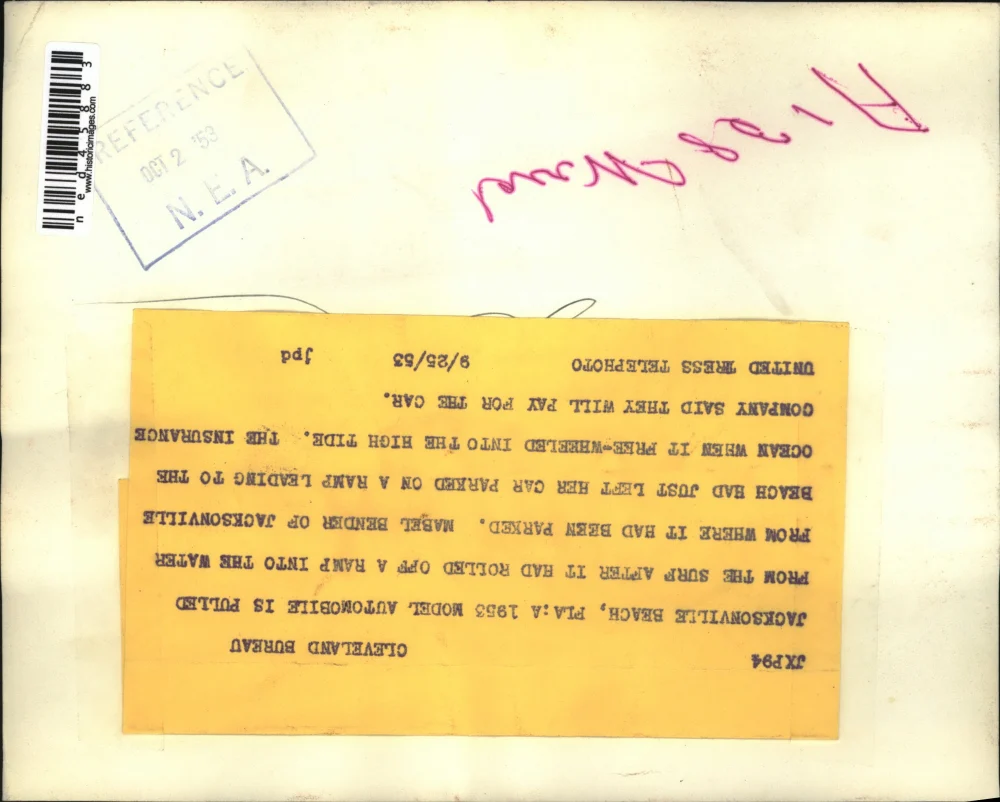 ned45883
www.historicimages.com
REFERENCE
OCT 2 '53
N. E. A.
JXP94 CLEVELAND BUREAU
JACKSONVILLE BEACH, FLA:A 1953 MODEL AUTOMOBILE IS PULLED
FROM THE SURF AFTER IT HAD ROLLED OFF A RAMP INTO THE WATER
FROM WHERE IT HAD BEEN PARKED. MABEL BENDER OF JACKSONVILLE
BEACH HAD JUST LEFT HER CAR PARKED ON A RAMP LEADING TO THE
OCEAN WHEN IT FREE-WHEELED INTO THE HIGH TIDE. THE INSURANCE
COMPANY SAID THEY WILL PAY FOR THE CAR.
UNITED PRESS TELEPHOTO 9/25/53 jpd